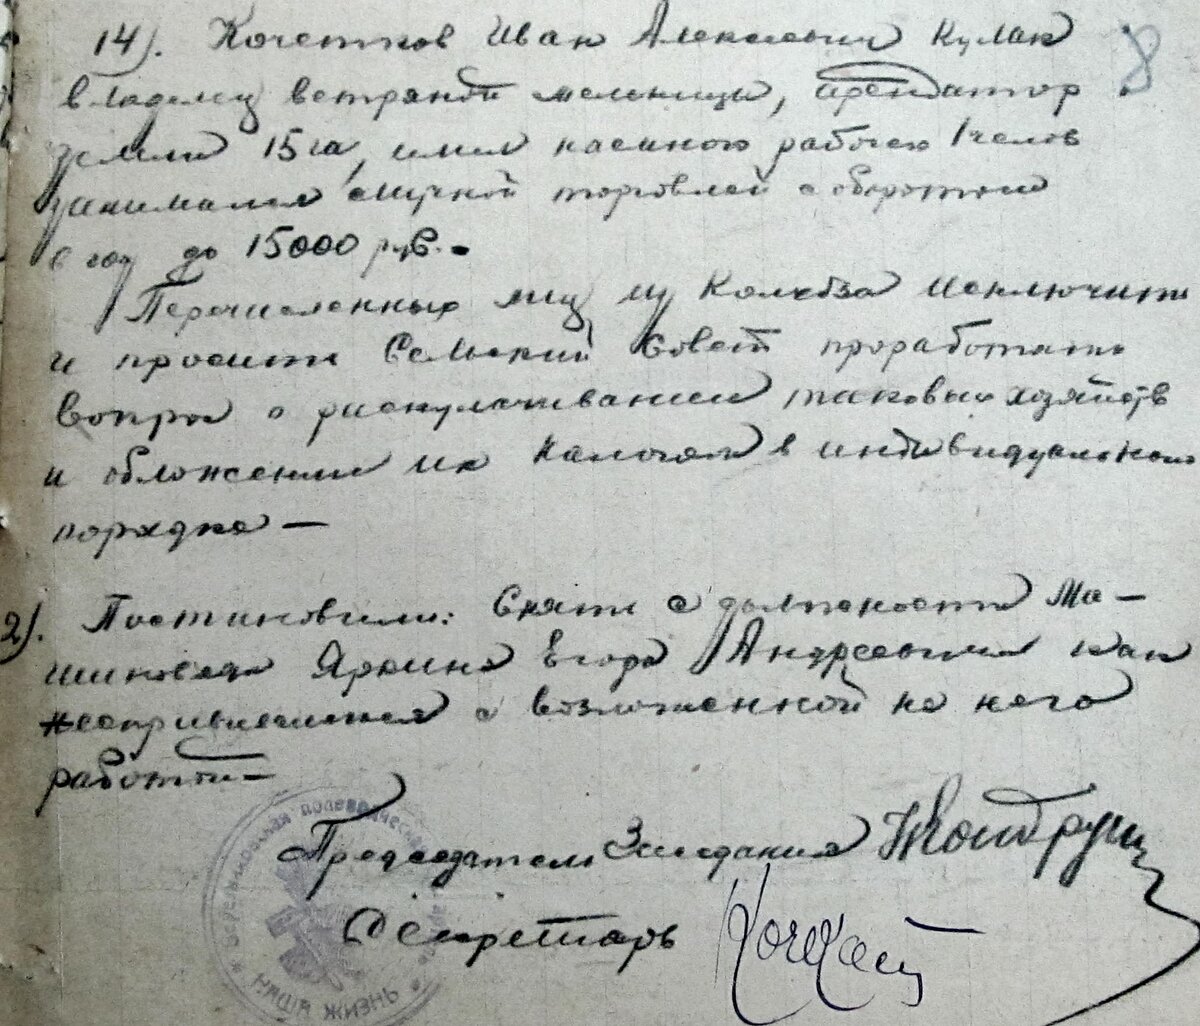 14). Кочетков Иван Алексеевич Кулак
8
владелец ветряной мельницы, арендатор
земли 15 га, имел наемного рабочего 1 челов
занимался мучной торговлей с оборотом
в год до 15000 руб.
Перечисленных лиц из Колхоза исключить
и просить Сельский Совет проработать
вопрос о раскулачивании таковых хозяйств
и обложении их налогом в индивидуальном
порядке —
2). Постановили: Снять с должности Ма-
шиноведа Яркина Егора Андреевича как
несправившегося с возложенной на него
работой —
Председатель Заседания
Секретарь
НАША ЖИЗНЬ